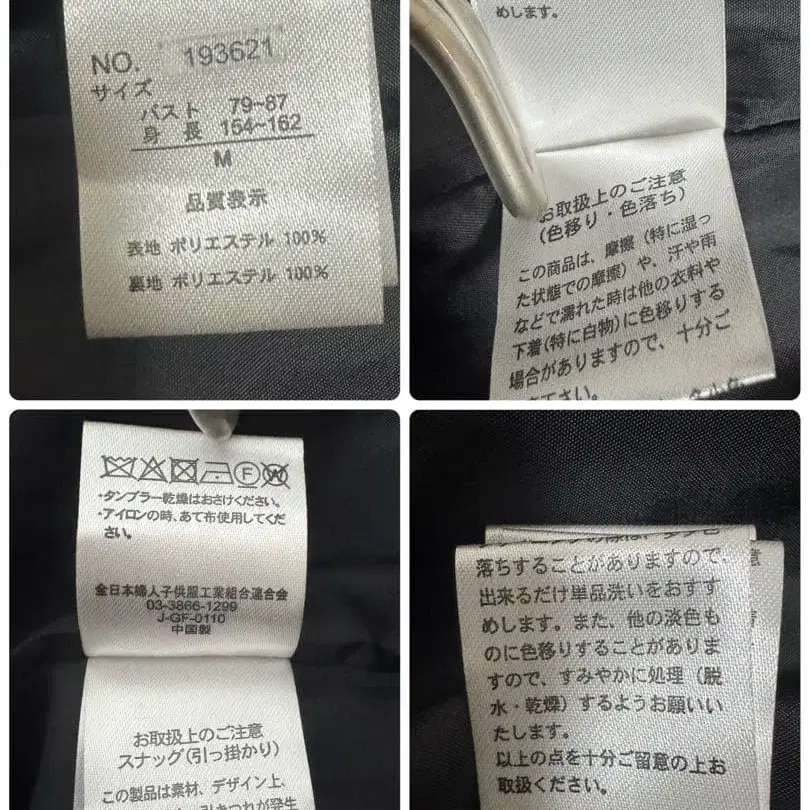 NO. 193621
サイズ
バスト 79~87
身長 154~162
M
品質表示
表地 ポリエステル 100%
裏地 ポリエステル 100%
めします。
お取扱上のご注意
(色移り・色落ち)
この商品は、摩擦(特に湿っ
た状態での摩擦)や、汗や雨
などで濡れた時は他の衣料や
下着(特に白物)に色移りする
場合がありますので、十分ご
ださい。
F
W
・タンブラー乾燥はおさけください。
・アイロンの時、あて布使用してくだ
さい。
全日本婦人子供服工業組合連合会
03-3866-1299
J-GF-0110
中国製
お取扱上のご注意
スナッグ(引っ掛かり)
この製品は素材、デザイン上、
引きつれが発生
落ちすることがありますので、
出来るだけ単品洗いをおすす
めします。また、他の淡色も
のに色移りすることがありま
すので、すみやかに処理(脱
水・乾燥)するようお願いい
たします。
以上の点を十分ご留意の上お
取扱ください。
意